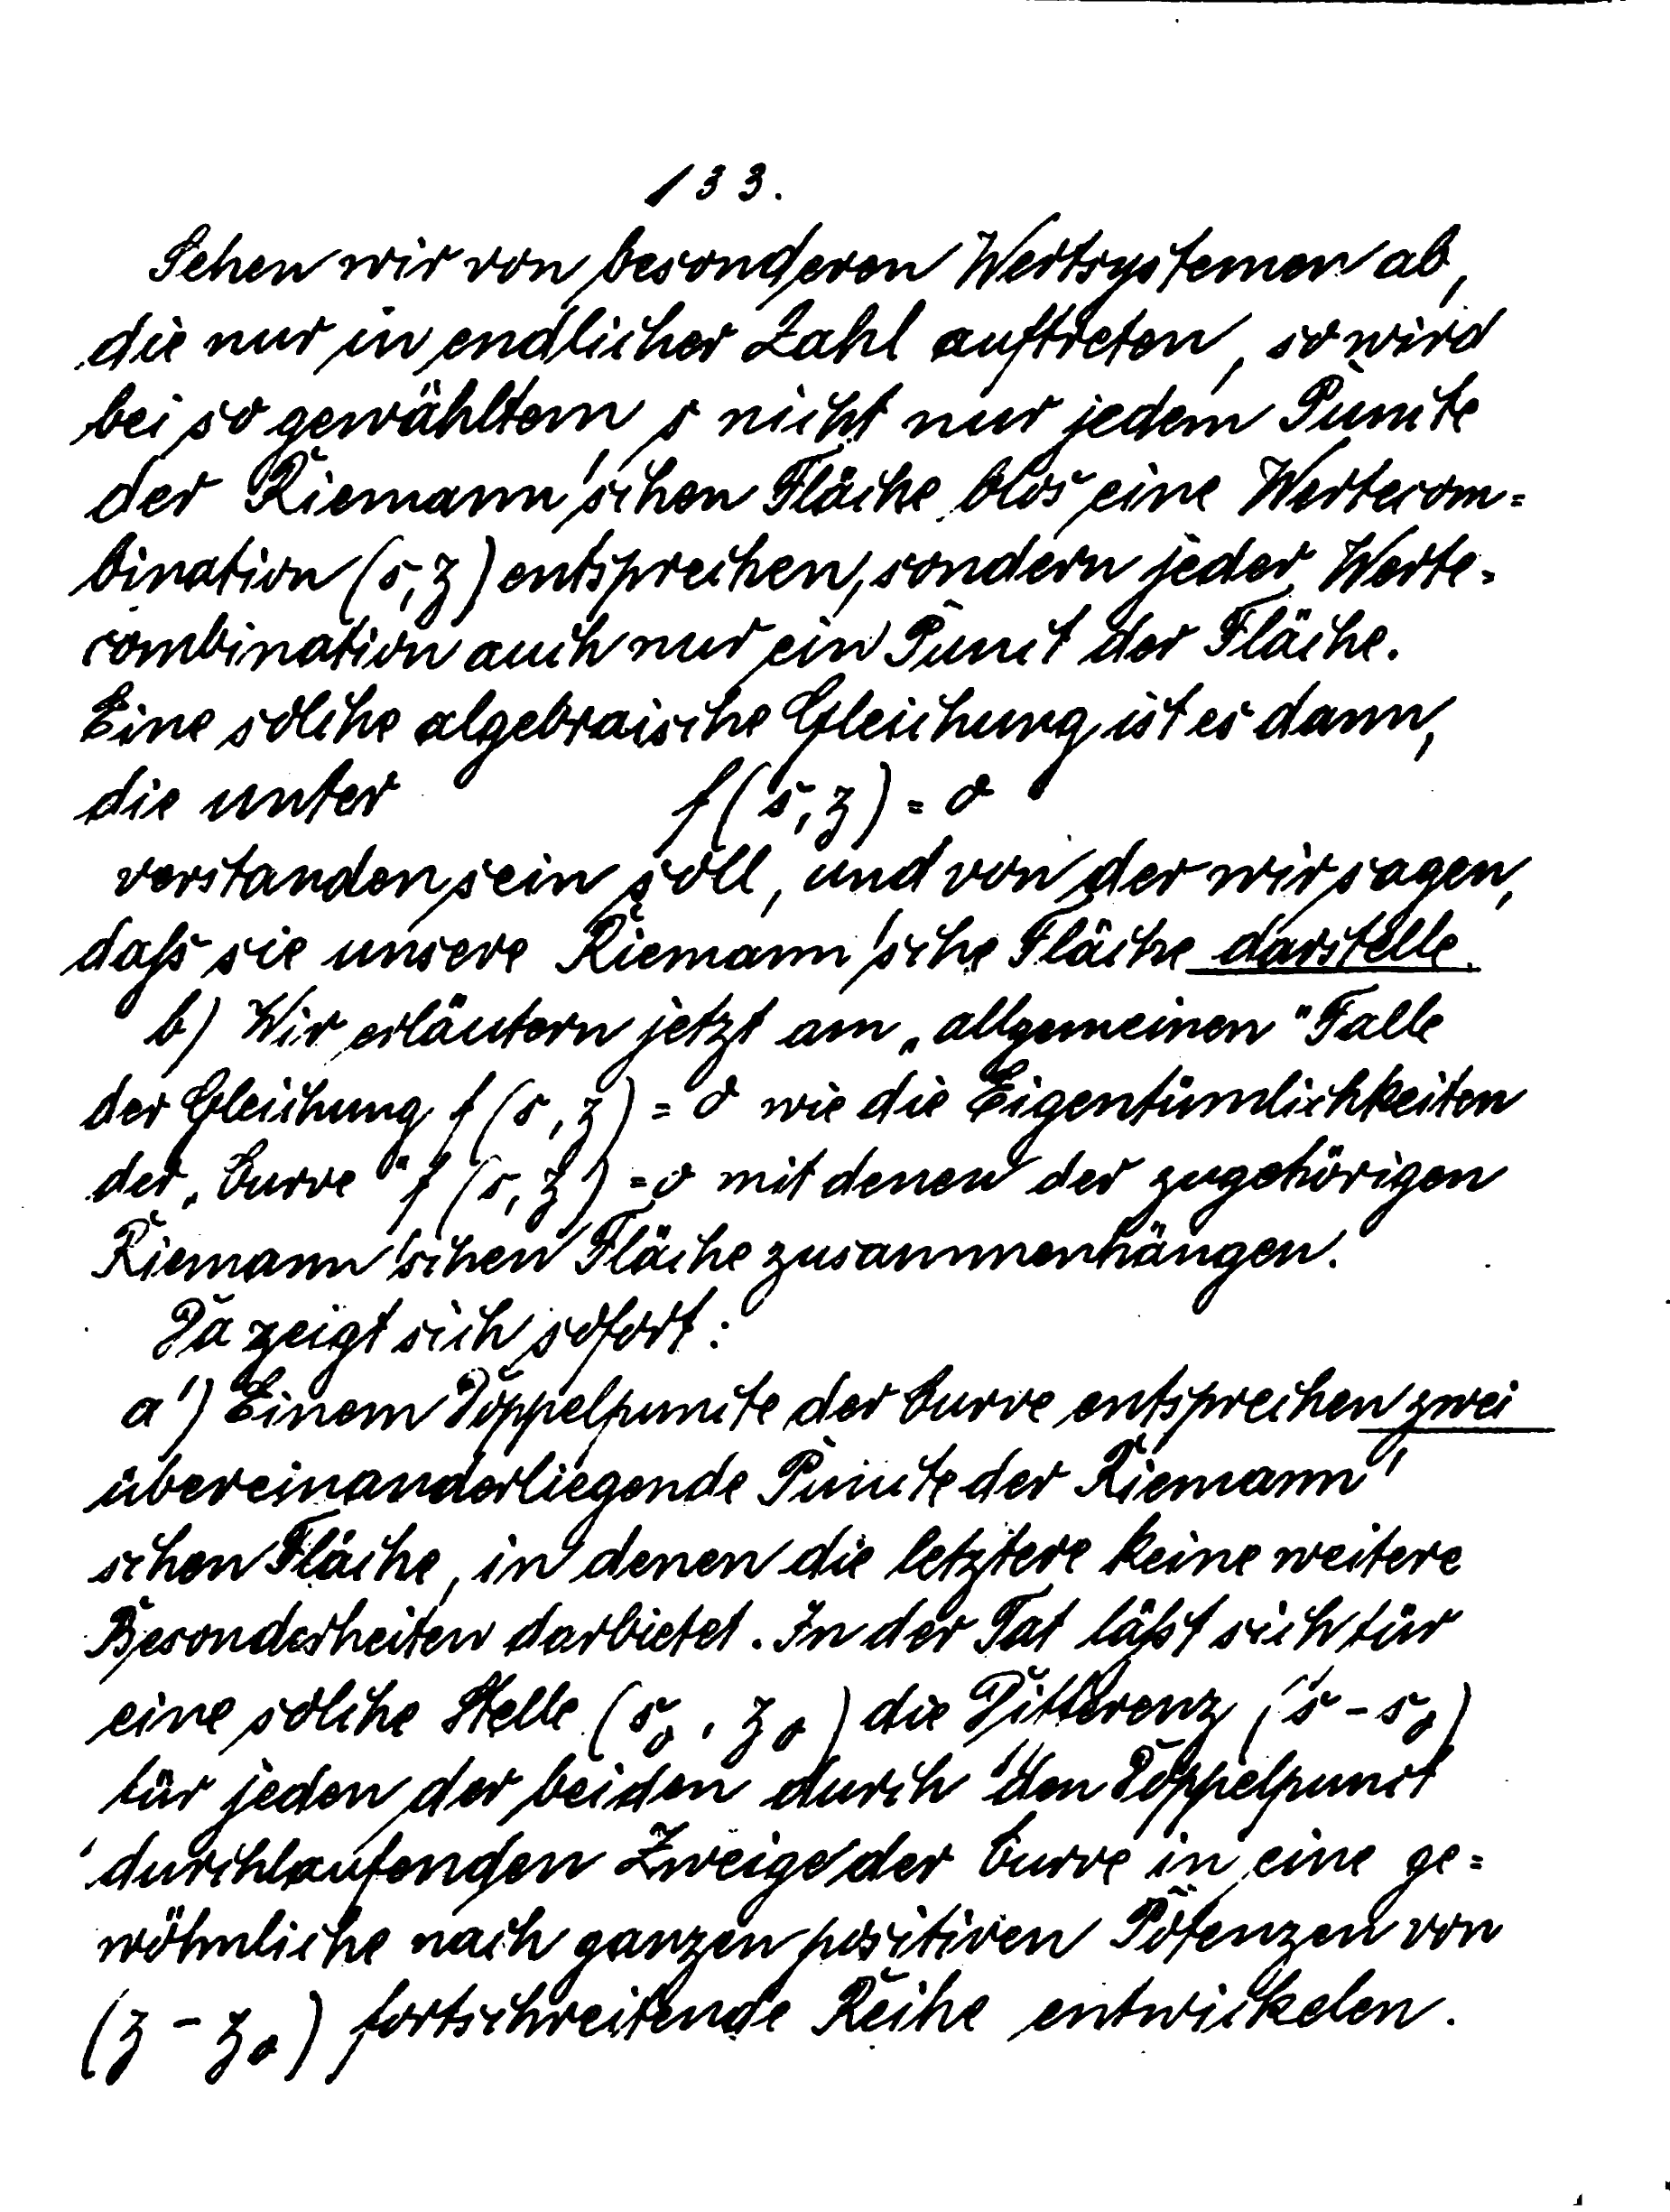 133.
Sehen wir von besonderen Wertsystemen ab,
die nur in endlicher Zahl auftreten, so wird
bei so gewähltem s nicht nur jedem Puncte
der Riemann'schen Fläche blos eine Wertecom=
bination (s, z) entsprechen, sondern jeder Werte=
combination auch nur ein Punct der Fläche.
Eine solche algebraische Gleichung ist es dann,
die unter f(s, z) = 0
verstanden sein soll, und von der wir sagen,
daß sie unsere Riemann'sche Fläche darstelle.
b) Wir erläutern jetzt am „allgemeinen" Falle
der Gleichung f(s, z) = 0 wie die Eigentümlichkeiten
der „Curve" f(s, z) = 0 mit denen der zugehörigen
Riemann'schen Fläche zusammenhängen.
Da zeigt sich sofort:
a') Einem Doppelpuncte der Curve entsprechen zwei
übereinanderliegende Puncte der Riemann'
schen Fläche, in denen die letztere keine weitere
Besonderheiten darbietet. In der Tat läßt sich für
eine solche Stelle (s₀, z₀) die Differenz (s - s₀)
für jeden der beiden durch den Doppelpunct
durchlaufenden Zweige der Curve in eine ge=
wöhnliche nach ganzen positiven Potenzen von
(z - z₀) fortschreitende Reihe entwickelen.